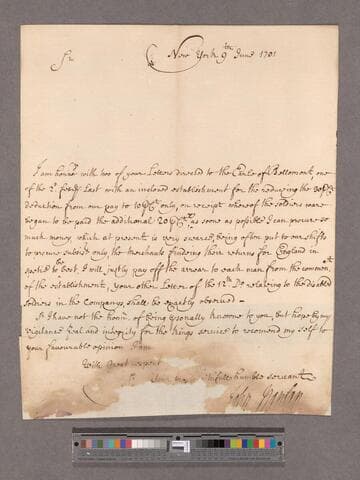 Sr
New York 9th June 1701
I am honrd with two of your Letters directed to the Earle of Bellomont, one
of the 2d febry last with an inclosed establishment for the reducing the 30 P Ct
deduction from our pay to 10 P Ct only, on receipt whereof the soldiers were
began to be paid the additional 20 P Ct as soon as possible I can procure so
much money which at present is very scarce, being often put to our shifts
to procure subsist only the merchants finding their returns for England in
specie to be best, I will justly pay off the arrear to each man from the commenmt
of the establishment, your other Letter of the 12th Do relateing to the disabled
Soldiers in the Companys, shall be exactly observed —
Sr I have not the honr of being personally knowne to you, but hope by my
vigilance zeal and integrity for the Kings service to recomend my self to
your favourable opinion I am
With Great respect
Sr Your most faithfull humble servant
John Nanfan